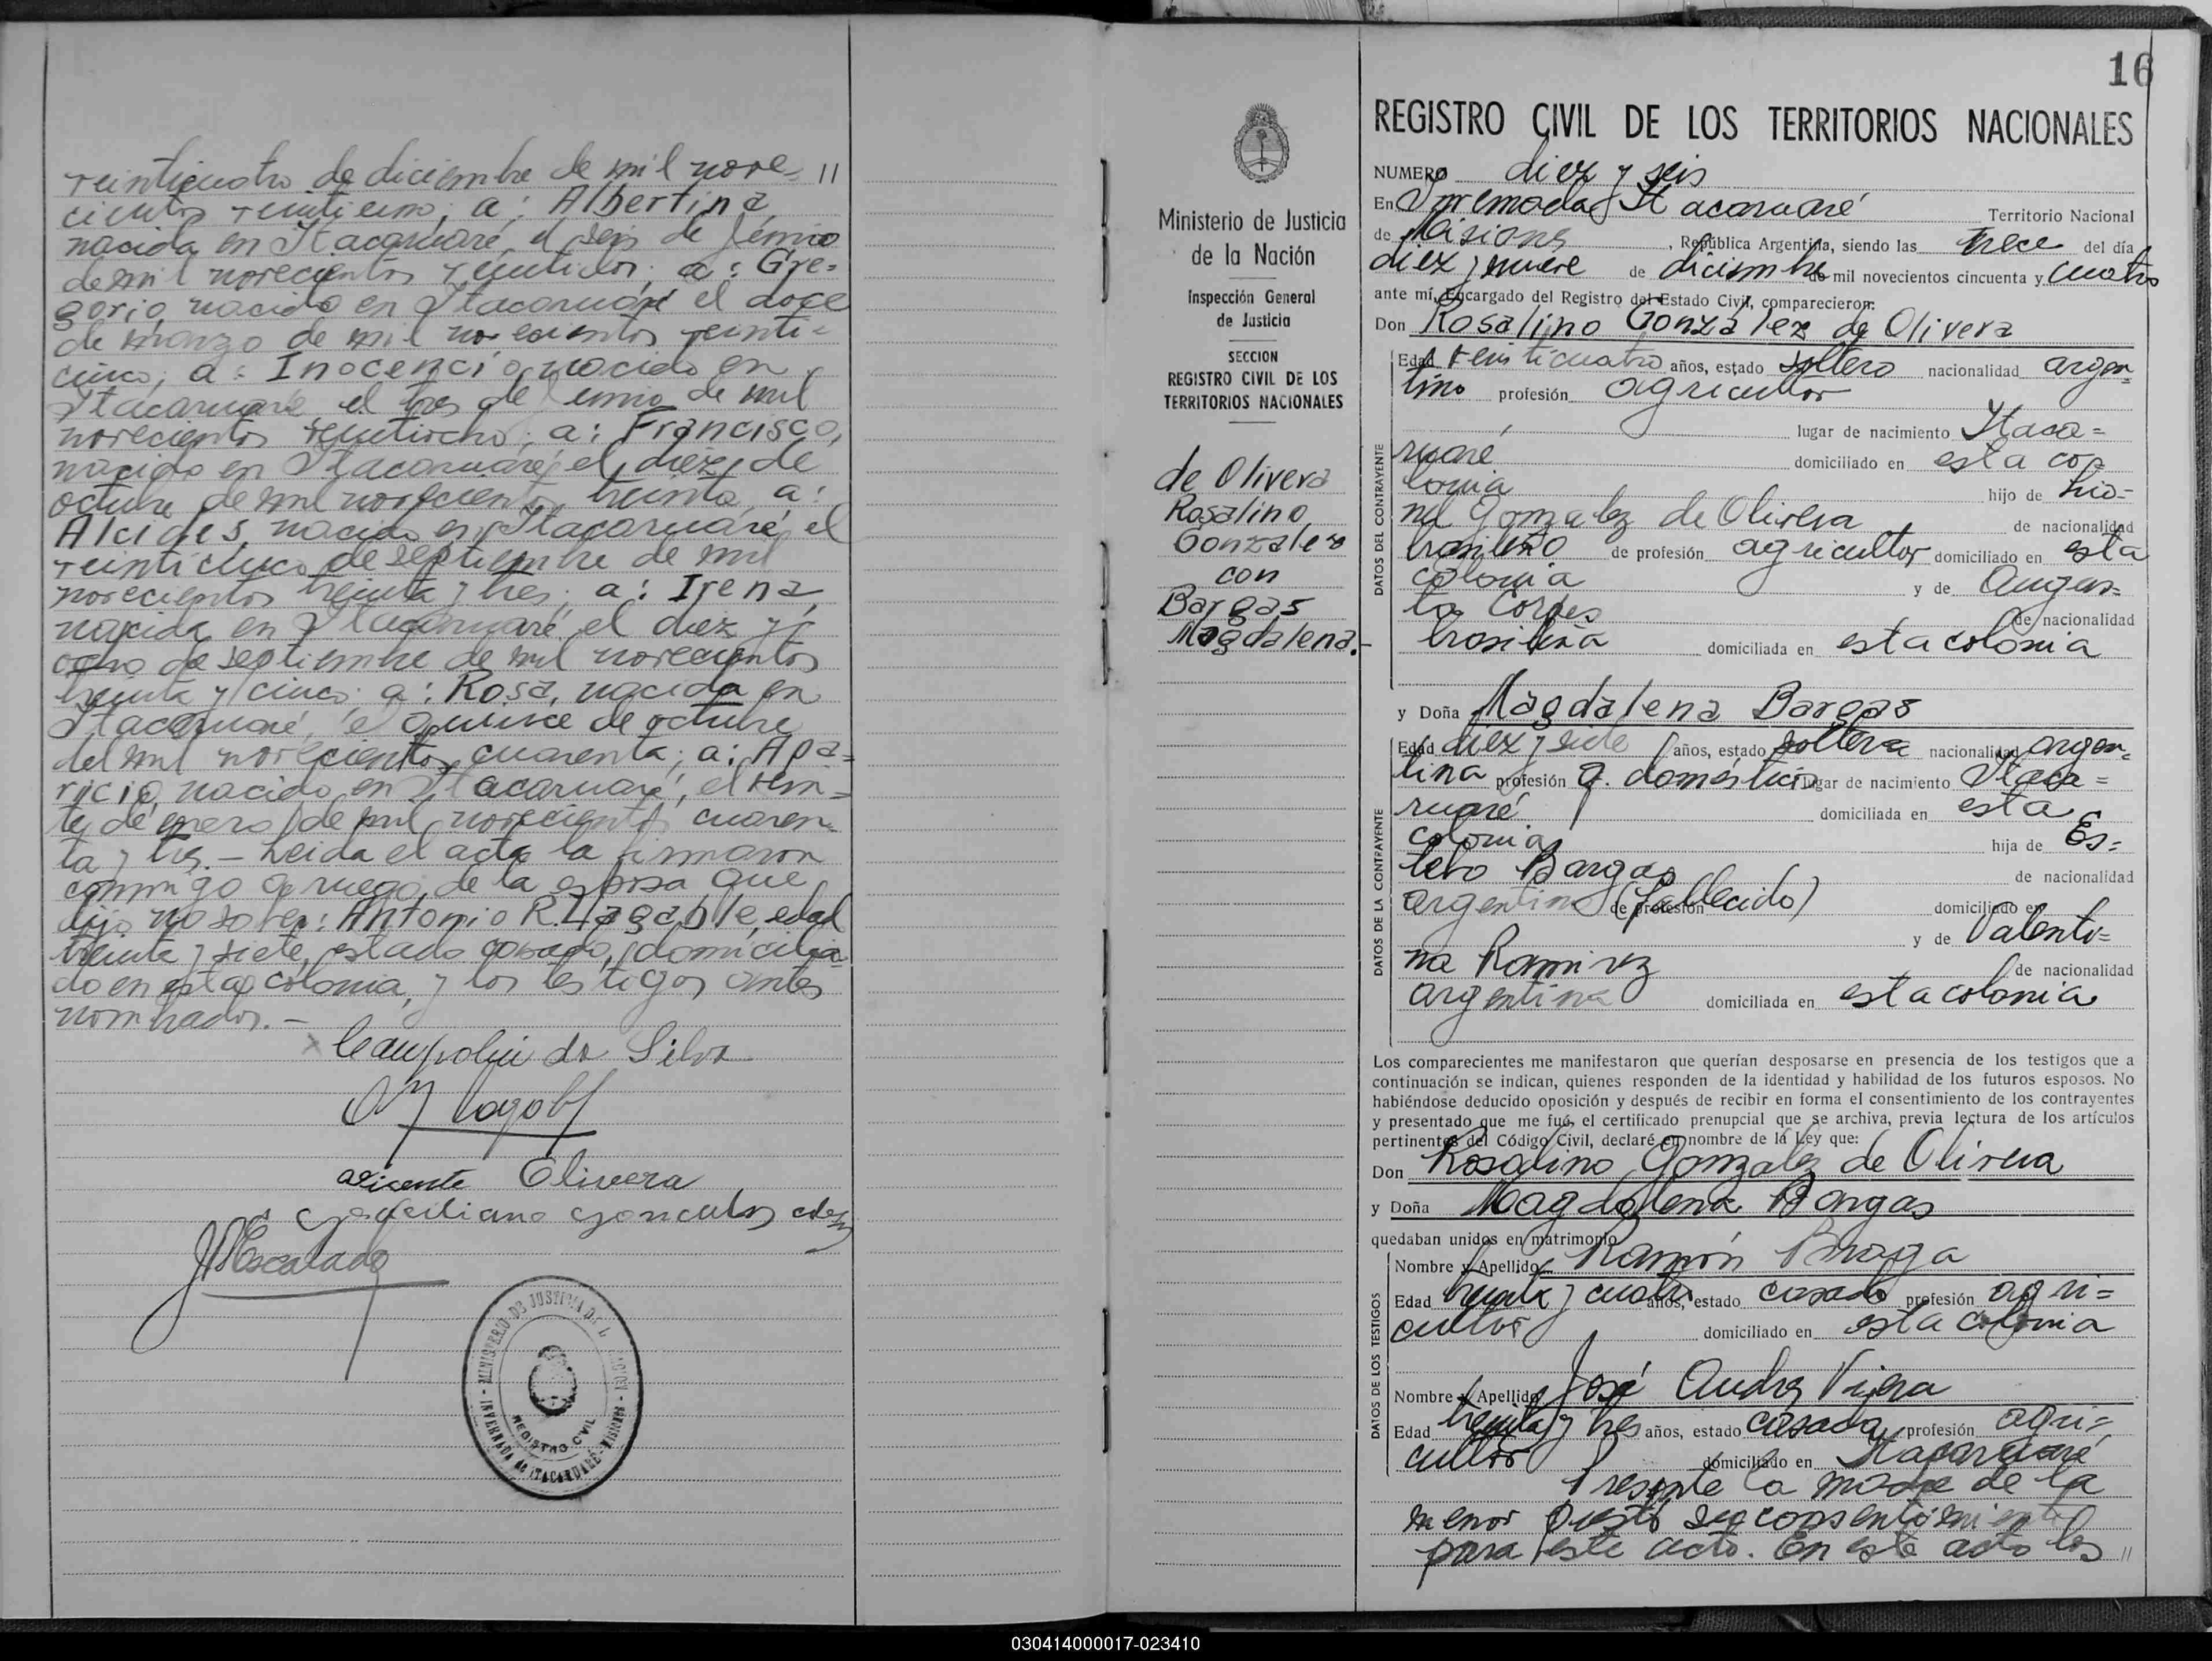 veinticuatro de diciembre de mil nove- //
cientos veintiuno; a: Albertina
nacida en Itacaruaré, el seis de junio
de mil novecientos veintidos; a: Gre=
gorio, nacido en Itacaruaré el doce
de marzo de mil novecientos veinti=
cinco; a: Inocencio, nacido en
Itacaruaré el tres de junio de mil
novecientos veintiocho; a: Francisco,
nacido en Itacaruaré, el diez de
octubre de mil novecientos treinta, a:
Alcides, nacido en Itacaruaré, el
veinticinco de septiembre de mil
novecientos treinta y tres; a: Irena,
nacida en Itacaruaré el diez y
ocho de septiembre de mil novecientos
treinta y cinco; a: Rosa, nacida en
Itacaruaré, el quince de octubre
del mil novecientos cuarenta; a: Apa=
ricio, nacido en Itacaruaré, el vein=
te de enero de mil novecientos cuaren-
ta y tres. - Leida el acta la firmaron
conmigo a ruego de la esposa que
dijo no saber: Antonio R. Lagable, edad
treinta y siete, estado casado, domicilia-
do en esta colonia, y los testigos antes
nombrados. -
da Silva
Vicente Olivera
Escalada
MINISTERIO DE JUSTICIA DE LA NACION
REGISTRO CIVIL
INVERNADA de ITACARUARÉ - MISIONES
Ministerio de Justicia
de la Nación
Inspección General
de Justicia
SECCION
REGISTRO CIVIL DE LOS
TERRITORIOS NACIONALES
de Olivera
Rosalino
Gonzalez
con
Bargas
Magdalena.-
16
REGISTRO CIVIL DE LOS TERRITORIOS NACIONALES
NUMERO diez y seis
En Invernada Itacaruaré Territorio Nacional
de Misiones, República Argentina, siendo las trece del día
diez y nueve de diciembre de mil novecientos cincuenta y cuatro
ante mí, Encargado del Registro del Estado Civil, comparecieron:
Don Rosalino Gonzalez de Olivera
Edad veinticuatro años, estado soltero nacionalidad argen=
tino profesión agricultor
lugar de nacimiento Itaca=
ruaré domiciliado en esta co=
lonia hijo de Lio=
nel Gonzalez de Olivera de nacionalidad
brasileño de profesión agricultor domiciliado en esta
colonia y de Augus=
ta Cortes de nacionalidad
brasileña domiciliada en esta colonia
DATOS DEL CONTRAYENTE
y Doña Magdalena Bargas
Edad diez y siete años, estado soltera nacionalidad argen=
tina profesión q. domésticos lugar de nacimiento Itaca=
ruaré domiciliada en esta
colonia hija de Es=
tebo Bargas de nacionalidad
argentino (fallecido) de profesión domiciliado en
y de Valenti=
na Ramirez de nacionalidad
argentina domiciliada en esta colonia
DATOS DE LA CONTRAYENTE
Los comparecientes me manifestaron que querían desposarse en presencia de los testigos que a
continuación se indican, quienes responden de la identidad y habilidad de los futuros esposos. No
habiéndose deducido oposición y después de recibir en forma el consentimiento de los contrayentes
y presentado que me fué, el certificado prenupcial que se archiva, previa lectura de los artículos
pertinentes del Código Civil, declaré en nombre de la Ley que:
Don Rosalino Gonzalez de Olivera
y Doña Magdalena Bargas
quedaban unidos en matrimonio
Nombre y Apellido Ramón Braga
Edad treinta y cuatro años, estado casado profesión agri=
cultor domiciliado en esta colonia
Nombre y Apellido José Andres Viera
Edad treinta y tres años, estado casado profesión agri=
cultor domiciliado en Itacaruaré
DATOS DE LOS TESTIGOS
Presente la madre de la
menor presto su consentimiento
para este acto. En este acto los //
030414000017-023410